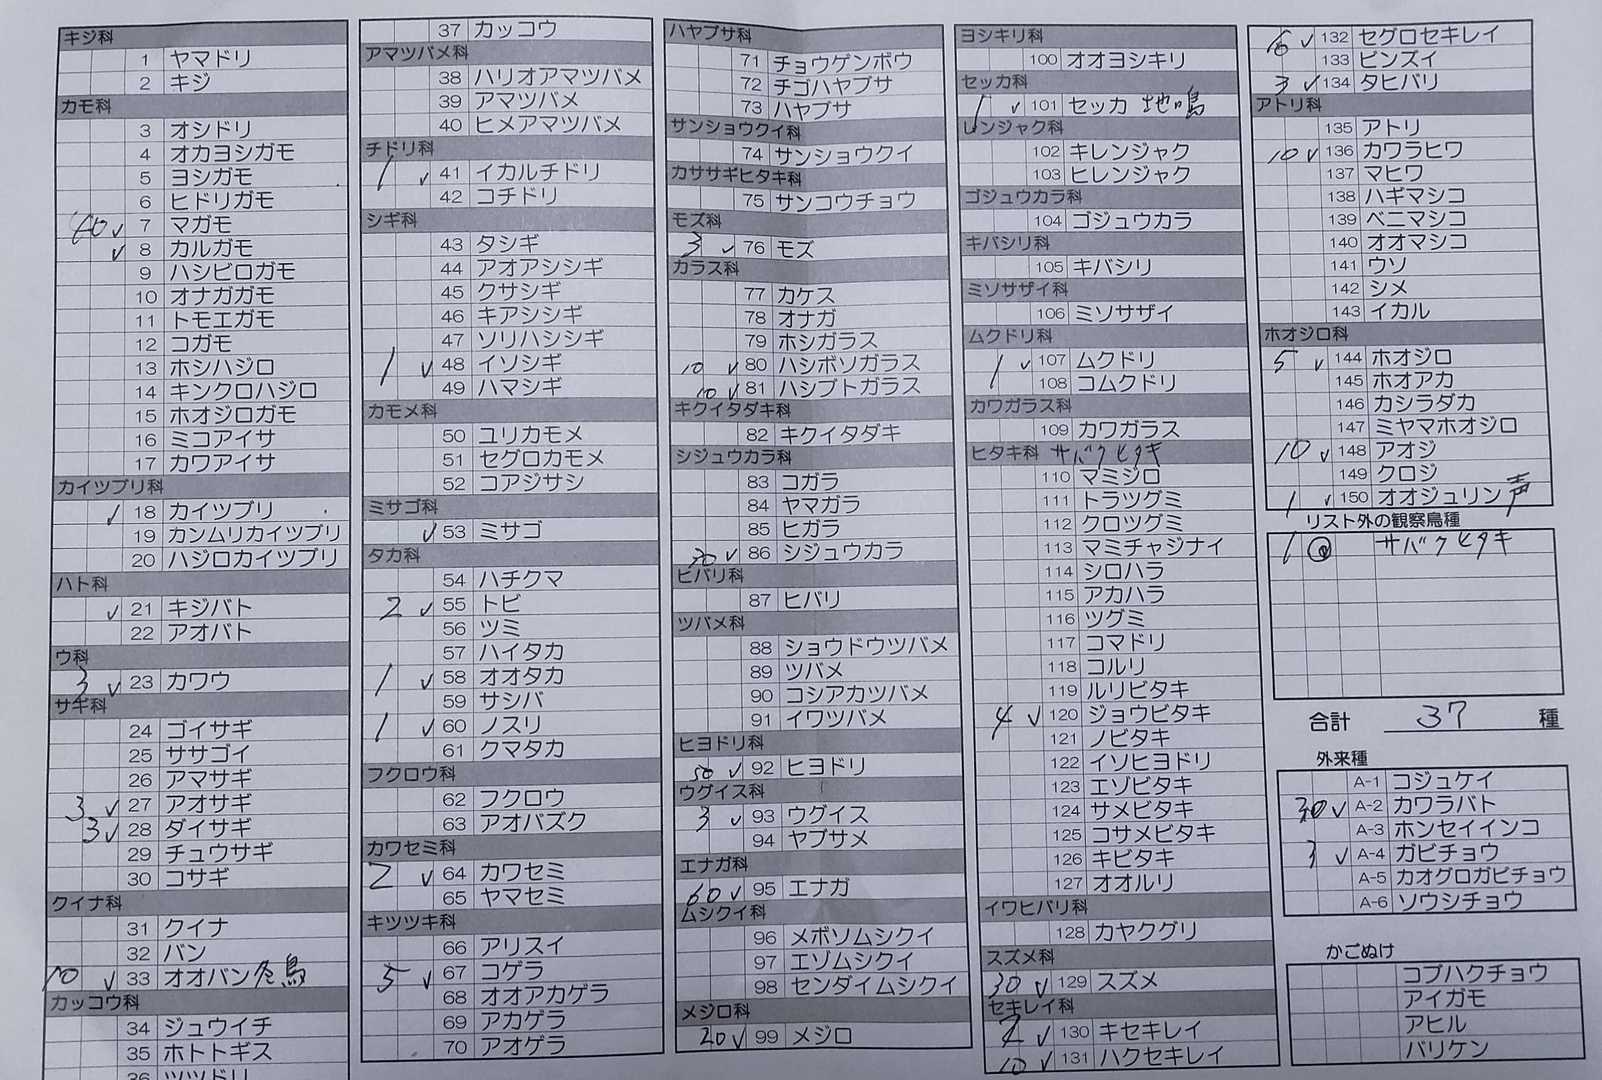 キジ科
1 ヤマドリ
2 キジ
カモ科
3 オシドリ
4 オカヨシガモ
5 ヨシガモ
6 ヒドリガモ
40 ✓ 7 マガモ
✓ 8 カルガモ
9 ハシビロガモ
10 オナガガモ
11 トモエガモ
12 コガモ
13 ホシハジロ
14 キンクロハジロ
15 ホオジロガモ
16 ミコアイサ
17 カワアイサ
カイツブリ科
✓ 18 カイツブリ
19 カンムリカイツブリ
20 ハジロカイツブリ
ハト科
✓ 21 キジバト
22 アオバト
ウ科
3 ✓ 23 カワウ
サギ科
24 ゴイサギ
25 ササゴイ
26 アマサギ
3 ✓ 27 アオサギ
3 ✓ 28 ダイサギ
29 チュウサギ
30 コサギ
クイナ科
31 クイナ
32 バン
10 ✓ 33 オオバン 鳥
カッコウ科
34 ジュウイチ
35 ホトトギス
36 ツツドリ
37 カッコウ
アマツバメ科
38 ハリオアマツバメ
39 アマツバメ
40 ヒメアマツバメ
チドリ科
1 ✓ 41 イカルチドリ
42 コチドリ
シギ科
43 タシギ
44 アオアシシギ
45 クサシギ
46 キアシシギ
47 ソリハシシギ
1 ✓ 48 イソシギ
49 ハマシギ
カモメ科
50 ユリカモメ
51 セグロカモメ
52 コアジサシ
ミサゴ科
✓ 53 ミサゴ
タカ科
54 ハチクマ
2 ✓ 55 トビ
56 ツミ
57 ハイタカ
1 ✓ 58 オオタカ
59 サシバ
1 ✓ 60 ノスリ
61 クマタカ
フクロウ科
62 フクロウ
63 アオバズク
カワセミ科
2 ✓ 64 カワセミ
65 ヤマセミ
キツツキ科
66 アリスイ
5 ✓ 67 コゲラ
68 オオアカゲラ
69 アカゲラ
70 アオゲラ
ハヤブサ科
71 チョウゲンボウ
72 チゴハヤブサ
73 ハヤブサ
サンショウクイ科
74 サンショウクイ
カササギヒタキ科
75 サンコウチョウ
モズ科
3 ✓ 76 モズ
カラス科
77 カケス
78 オナガ
79 ホシガラス
10 ✓ 80 ハシボソガラス
10 ✓ 81 ハシブトガラス
キクイタダキ科
82 キクイタダキ
シジュウカラ科
83 コガラ
84 ヤマガラ
85 ヒガラ
30 ✓ 86 シジュウカラ
ヒバリ科
87 ヒバリ
ツバメ科
88 ショウドウツバメ
89 ツバメ
90 コシアカツバメ
91 イワツバメ
ヒヨドリ科
50 ✓ 92 ヒヨドリ
ウグイス科
3 ✓ 93 ウグイス
94 ヤブサメ
エナガ科
60 ✓ 95 エナガ
ムシクイ科
96 メボソムシクイ
97 エゾムシクイ
98 センダイムシクイ
メジロ科
20 ✓ 99 メジロ
ヨシキリ科
100 オオヨシキリ
セッカ科
1 ✓ 101 セッカ 地鳴
レンジャク科
102 キレンジャク
103 ヒレンジャク
ゴジュウカラ科
104 ゴジュウカラ
キバシリ科
105 キバシリ
ミソサザイ科
106 ミソサザイ
ムクドリ科
1 ✓ 107 ムクドリ
108 コムクドリ
カワガラス科
109 カワガラス
ヒタキ科 サバクヒタキ
110 マミジロ
111 トラツグミ
112 クロツグミ
113 マミチャジナイ
114 シロハラ
115 アカハラ
116 ツグミ
117 コマドリ
118 コルリ
119 ルリビタキ
4 ✓ 120 ジョウビタキ
121 ノビタキ
122 イソヒヨドリ
123 エゾビタキ
124 サメビタキ
125 コサメビタキ
126 キビタキ
127 オオルリ
イワヒバリ科
128 カヤクグリ
スズメ科
30 ✓ 129 スズメ
セキレイ科
2 ✓ 130 キセキレイ
10 ✓ 131 ハクセキレイ
6 ✓ 132 セグロセキレイ
133 ビンズイ
3 ✓ 134 タヒバリ
アトリ科
135 アトリ
10 ✓ 136 カワラヒワ
137 マヒワ
138 ハギマシコ
139 ベニマシコ
140 オオマシコ
141 ウソ
142 シメ
143 イカル
ホオジロ科
5 ✓ 144 ホオジロ
145 ホオアカ
146 カシラダカ
147 ミヤマホオジロ
10 ✓ 148 アオジ
149 クロジ
1 ✓ 150 オオジュリン 声
リスト外の観察鳥種
1 サバクヒタキ
合計 37 種
外来種
A-1 コジュケイ
30 ✓ A-2 カワラバト
A-3 ホンセイインコ
3 ✓ A-4 ガビチョウ
A-5 カオグロガビチョウ
A-6 ソウシチョウ
かごぬけ
コブハクチョウ
アイガモ
アヒル
バリケン